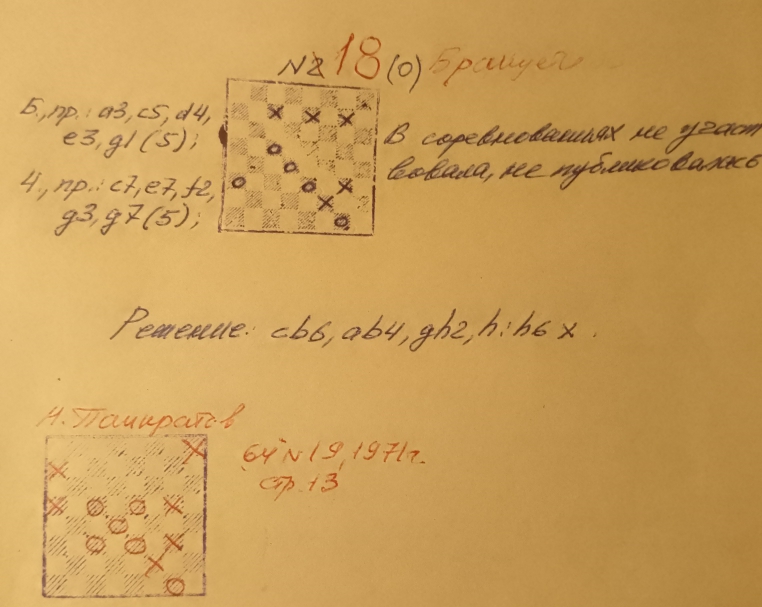 N2 18 (0)
Б., пр.: a3, c5, d4,
e3, g1 (5);
Ч., пр.: c7, e7, f2,
g3, g7 (5);
В соревнованиях не участ
вовала, не публиковалась
Решение: cb6, ab4, gh2, h:h6 x.
Н. Панкратов
"64" N 19, 1971 г.
стр. 13